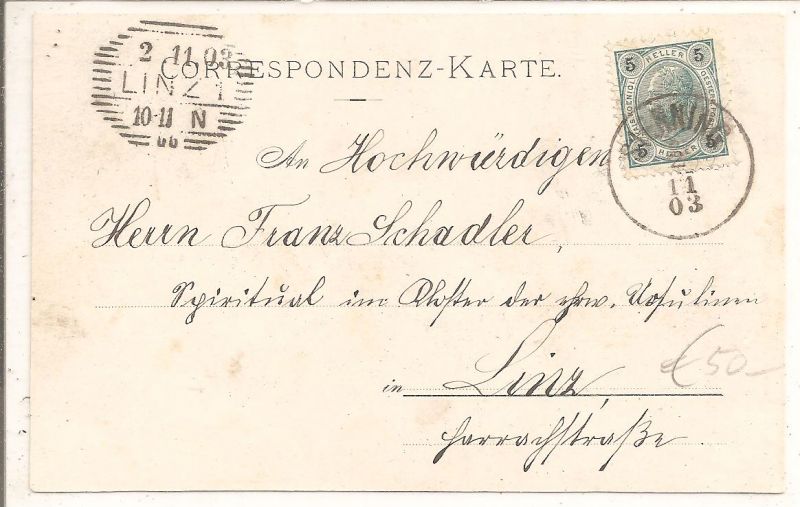 2 11.03
LINZ 1
10-11 N
66
CORRESPONDENZ-KARTE.
5 HELLER 5
5 HELLER 5
2
11
03
An Hochwürdigen
Herrn Franz Schadler,
Spiritual im Kloster der ehrw. Ursulinen
in Linz,
Harrachstraße.
€50-